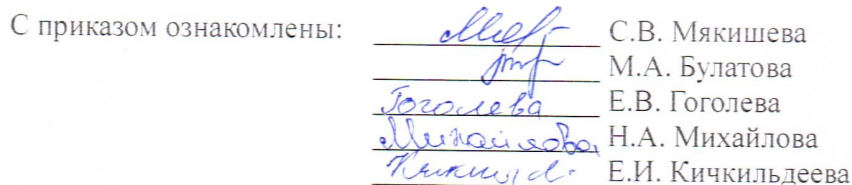 С приказом ознакомлены: С.В. Мякишева
М.А. Булатова
Гоголева Е.В. Гоголева
Михайлова Н.А. Михайлова
Е.И. Кичкильдеева